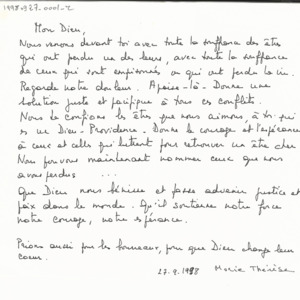 1998.937.0001-2
Mon Dieu,
Nous venons devant toi avec toute la souffrance des êtres
qui ont perdu un des leurs, avec toute la souffrance
de ceux qui sont emprisonnés ou qui ont perdu la vie.
Regarde notre douleur. Apaise-là - Donne une
solution juste et pacifique à tous ces conflits.
Nous te confions les êtres que nous aimons, à toi qui
es un Dieu-Providence - Donne le courage et l'espérance
à ceux et celles qui luttent pour retrouver un être cher
Nous pouvons maintenant nommer ceux que nous
avons perdus ...
Que Dieu nous bénisse et fasse advenir justice et
paix dans le monde. Qu'il soutienne notre force
notre courage, notre espérance.
Prions aussi pour les bourreaux, pour que Dieu change leur
coeur.
27.9.1988 Marie Thérèse